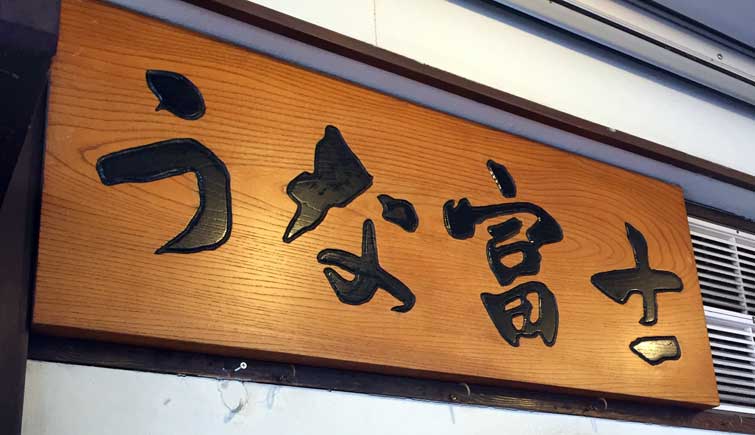 うな富士